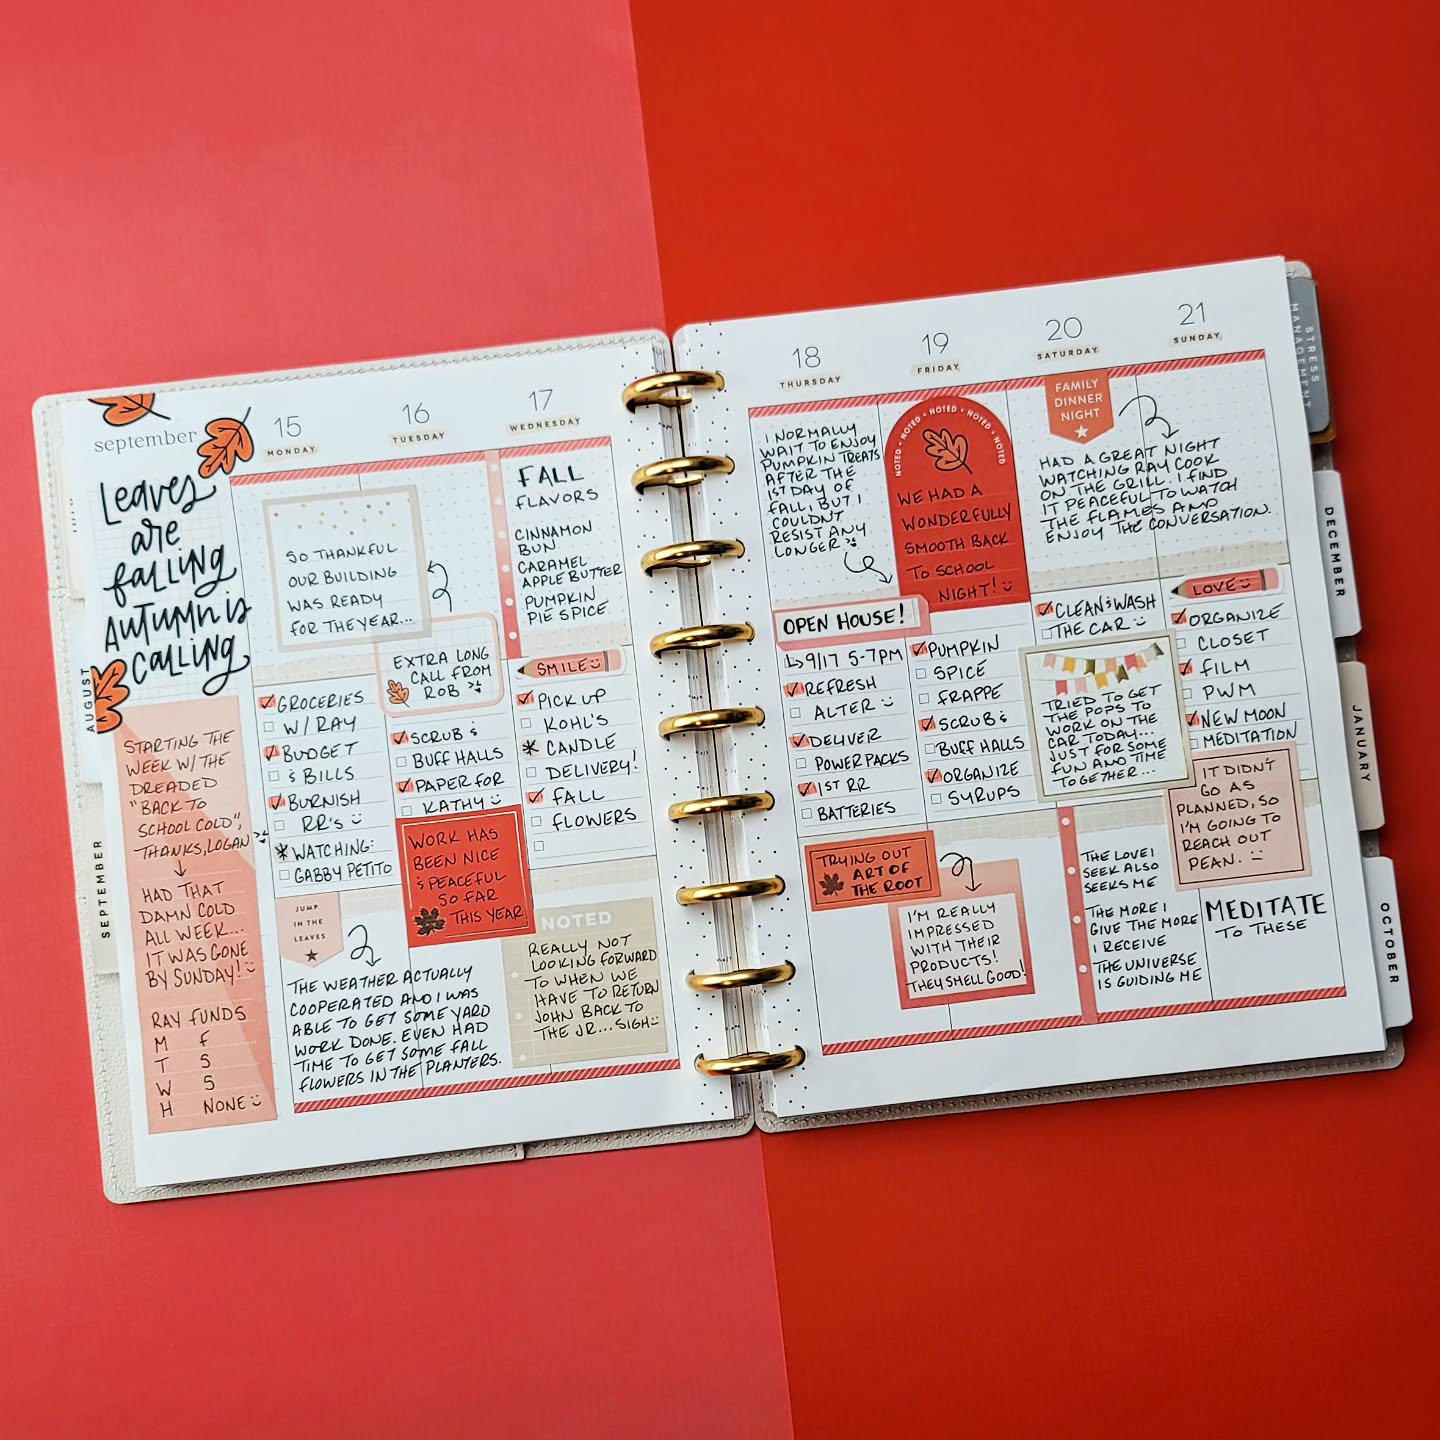 september
Leaves
are
falling
AUTUMN is
CALLING
STARTING THE
WEEK W/ THE
DREADED
"BACK TO
SCHOOL COLD",
THANKS, LOGAN
HAD THAT
DAMN COLD
ALL WEEK...
IT WAS GONE
BY SUNDAY!
RAY FUNDS
M F
T S
W S
H NONE
AUGUST
SEPTEMBER
15
MONDAY
SO THANKFUL
OUR BUILDING
WAS READY
FOR THE YEAR...
GROCERIES
W/ RAY
BUDGET
& BILLS
BURNISH
RR's
WATCHING:
GABBY PETITO
JUMP
IN THE
LEAVES
THE WEATHER ACTUALLY
COOPERATED AND I WAS
ABLE TO GET SOME YARD
WORK DONE. EVEN HAD
TIME TO GET SOME FALL
FLOWERS IN THE PLANTERS.
16
TUESDAY
EXTRA LONG
CALL FROM
ROB
SCRUB &
BUFF HALLS
PAPER FOR
KATHY
WORK HAS
BEEN NICE
& PEACEFUL
SO FAR
THIS YEAR
17
WEDNESDAY
FALL
FLAVORS
CINNAMON
BUN
CARAMEL
APPLE BUTTER
PUMPKIN
PIE SPICE
SMILE
PICK UP
KOHL'S
CANDLE
DELIVERY!
FALL
FLOWERS
NOTED
REALLY NOT
LOOKING FORWARD
TO WHEN WE
HAVE TO RETURN
JOHN BACK TO
THE JR... SIGH
18
THURSDAY
I NORMALLY
WAIT TO ENJOY
PUMPKIN TREATS
AFTER THE
1ST DAY OF
FALL, BUT I
COULDN'T
RESIST ANY
LONGER
OPEN HOUSE!
9/17 5-7PM
REFRESH
ALTER
DELIVER
POWER PACKS
1ST RR
BATTERIES
TRYING OUT
ART OF
THE ROOT
19
FRIDAY
NOTED • NOTED • NOTED • NOTED • NOTED
WE HAD A
WONDERFULLY
SMOOTH BACK
TO SCHOOL
NIGHT!
PUMPKIN
SPICE
FRAPPE
SCRUB &
BUFF HALLS
ORGANIZE
SYRUPS
I'M REALLY
IMPRESSED
WITH THEIR
PRODUCTS!
THEY SMELL GOOD!
20
SATURDAY
FAMILY
DINNER
NIGHT
HAD A GREAT NIGHT
WATCHING RAY COOK
ON THE GRILL. I FIND
IT PEACEFUL TO WATCH
THE FLAMES AND
ENJOY THE CONVERSATION.
CLEAN & WASH
THE CAR
TRIED TO GET
THE POPS TO
WORK ON THE
CAR TODAY...
JUST FOR SOME
FUN AND TIME
TOGETHER...
THE LOVE I
SEEK ALSO
SEEKS ME
THE MORE I
GIVE THE MORE
I RECEIVE
THE UNIVERSE
IS GUIDING ME
21
SUNDAY
LOVE
ORGANIZE
CLOSET
FILM
PWM
NEW MOON
MEDITATION
IT DIDN'T
GO AS
PLANNED, SO
I'M GOING TO
REACH OUT
PEAN.
MEDITATE
TO THESE
STRESS
MANAGEMENT
DECEMBER
JANUARY
OCTOBER